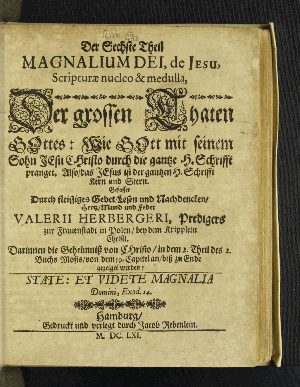 Der Sechste Theil
MAGNALIUM DEI, de JESU,
Scripturæ nucleo & medulla,
Der grossen Thaten
GOttes: Wie GOtt mit seinem
Sohn JEsu CHristo durch die gantze H. Schrifft
pranget, Also/ das JEsus ist der gantzen H. Schrifft
Kern und Stern.
Gefasset
Durch fleissiges Gebet/Lesen und Nachdencken/
Hertz/Mund und Feder
VALERII HERBERGERI, Predigers
zur Frauenstadt in Polen/ bey dem Kripplein
Christi.
Darinnen die Geheimnüß von CHristo/ in dem 2. Theil des 1.
Buchs Mosis/ von dem Capitel an/ biß zu Ende
gezeiget werden:
STATE: ET VIDETE MAGNALIA
Domini, Exod. 14.
Hamburg/
Gedruckt und verlegt durch Jacob Rebenlein.
M. DC. LXI.